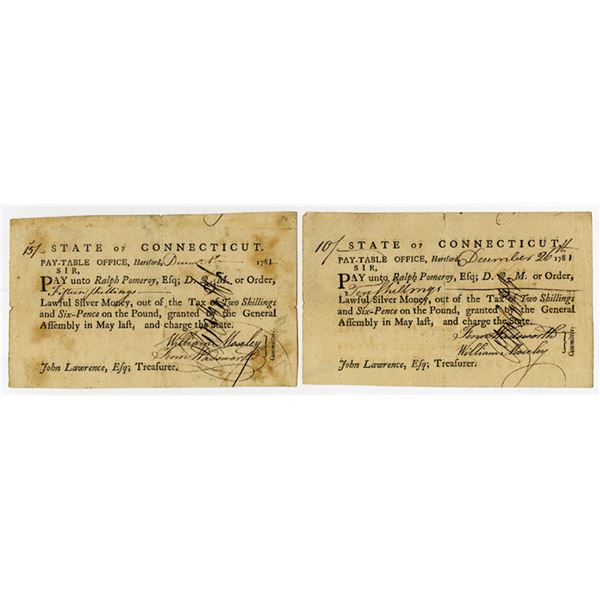 15/ STATE OF CONNECTICUT.
PAY-TABLE OFFICE, Hartford, 1781
SIR,
PAY unto Ralph Pomeroy, Esq; D. Q. M. or Order,
Fifteen shillings
Lawful Silver Money, out of the Tax of Two Shillings
and Six-Pence on the Pound, granted by the General
Assembly in May last, and charge the State.
William Moseley
Fenn Wadsworth
Committee.
John Lawrence, Esq; Treasurer.
10/ STATE OF CONNECTICUT.
PAY-TABLE OFFICE, Hartford, December 26th 1781
SIR,
PAY unto Ralph Pomeroy, Esq; D. Q. M. or Order,
Ten shillings
Lawful Silver Money, out of the Tax of Two Shillings
and Six-Pence on the Pound, granted by the General
Assembly in May last, and charge the State.
Fenn Wadsworth
William Moseley
Committee.
John Lawrence, Esq; Treasurer.